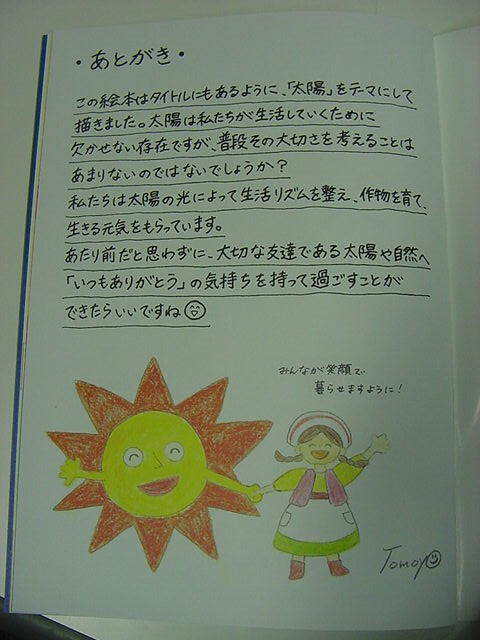 ・あとがき・
この絵本はタイトルにもあるように、「太陽」をテーマにして
描きました。太陽は私たちが生活していくために
欠かせない存在ですが、普段その大切さを考えることは
あまりないのではないでしょうか？
私たちは太陽の光によって生活リズムを整え、作物を育て、
生きる元気をもらっています。
あたり前だと思わずに、大切な友達である太陽や自然へ
「いつもありがとう」の気持ちを持って過ごすことが
できたらいいですね
みんなが笑顔で
暮らせますように！
Tomoyo